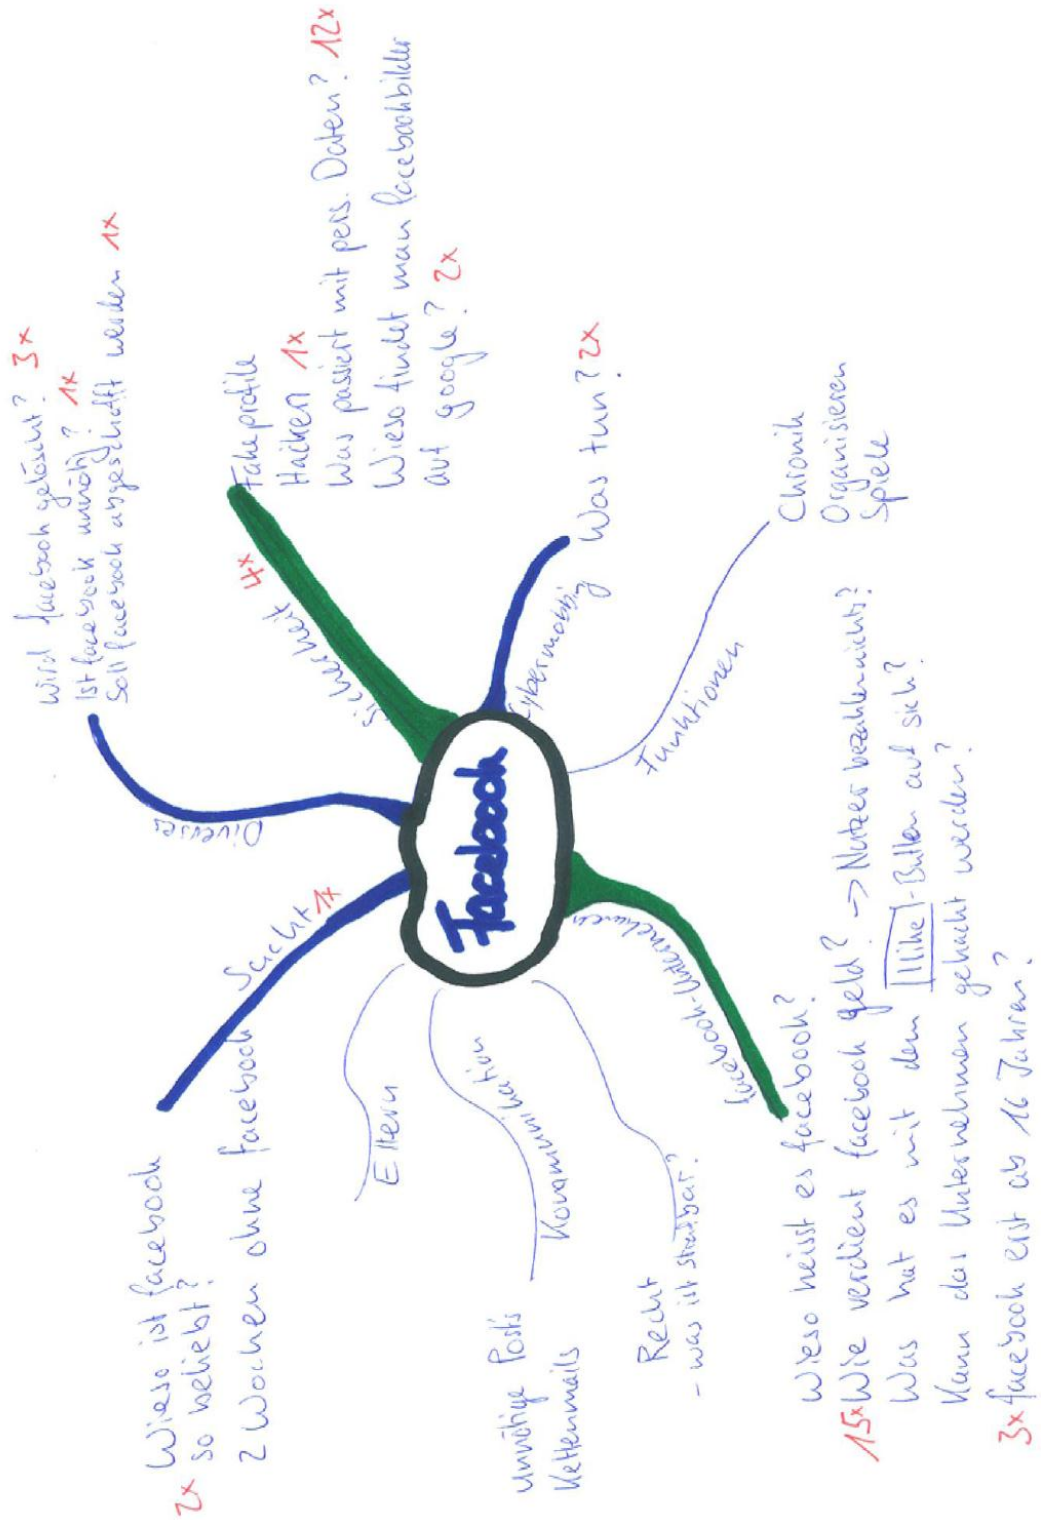 Facebook
Diverses
Wird facebook gelöscht? 3x
Ist facebook unnötig? 1x
Soll facebook abgeschafft werden 1x
Sicherheit 4x
Fakeprofile
Hacken 1x
Was passiert mit pers. Daten? 12x
Wieso findet man facebookbilder
auf google? 2x
Cybermobbing
Was tun? 2x
Funktionen
Chronik
Organisieren
Spiele
facebook-Unternehmen
Wieso heisst es facebook?
15x Wie verdient facebook geld? -> Nutzer bezahlen nichts?
Was hat es mit dem like-Button auf sich?
Kann das Unternehmen gehackt werden?
3x facebook erst ab 16 Jahren?
Recht
- was ist strafbar?
Kommunikation
Unnötige Posts
Kettenmails
Eltern
Sucht 1x
Wieso ist facebook
2x so beliebt?
2 Wochen ohne facebook